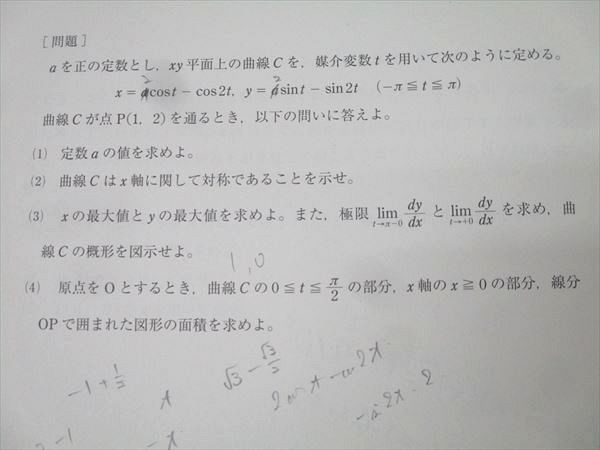 [問題]
aを正の定数とし，xy平面上の曲線Cを，媒介変数tを用いて次のように定める。
x = acost − cos2t, y = asint − sin2t (−π ≦ t ≦ π)
2 2
曲線Cが点P(1, 2)を通るとき，以下の問いに答えよ。
(1) 定数aの値を求めよ。
(2) 曲線Cはx軸に関して対称であることを示せ。
(3) xの最大値とyの最大値を求めよ。また，極限 lim t→π−0 dy/dx と lim t→+0 dy/dx を求め，曲
線Cの概形を図示せよ。
1, 0
(4) 原点をOとするとき，曲線Cの 0 ≦ t ≦ π/2 の部分，x軸の x ≧ 0 の部分，線分
OPで囲まれた図形の面積を求めよ。
−1 + 1/2
√3 − √3/2